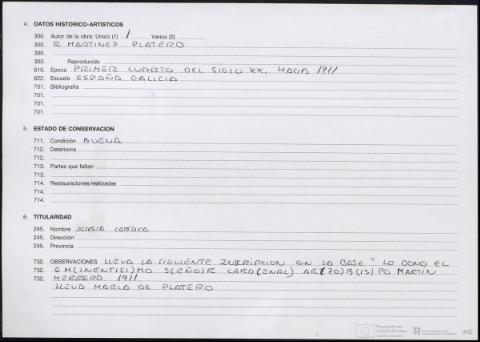 4. DATOS HISTORICO-ARTISTICOS
300. Autor de la obra: Unico (1) 1 Varios (2)
300. R. MARTINEZ PLATERO
300.
303. Reproducido
610. Epoca PRIMER CUARTO DEL SIGLO XX. HACIA 1911
622. Escuela ESPAÑA GALICIA
701. Bibliografía
701.
701.
701.
5. ESTADO DE CONSERVACION
711. Condición BUENA
712. Deterioros
712.
713. Partes que faltan
713.
714. Restauraciones realizadas
714.
714.
6. TITULARIDAD
245. Nombre IGLESIA CATOLICA
245. Dirección
245. Provincia
732. OBSERVACIONES LLEVA LA SIGUIENTE INSCRIPCION EN LA BASE " LO DONO EL
732. EM(INENTISI)MO S(EÑO)R CARD(ENAL) AR(ZO)B(IS)PO MARTIN
732. HERRERA 1911
LLEVA MARCA DE PLATERO
AG